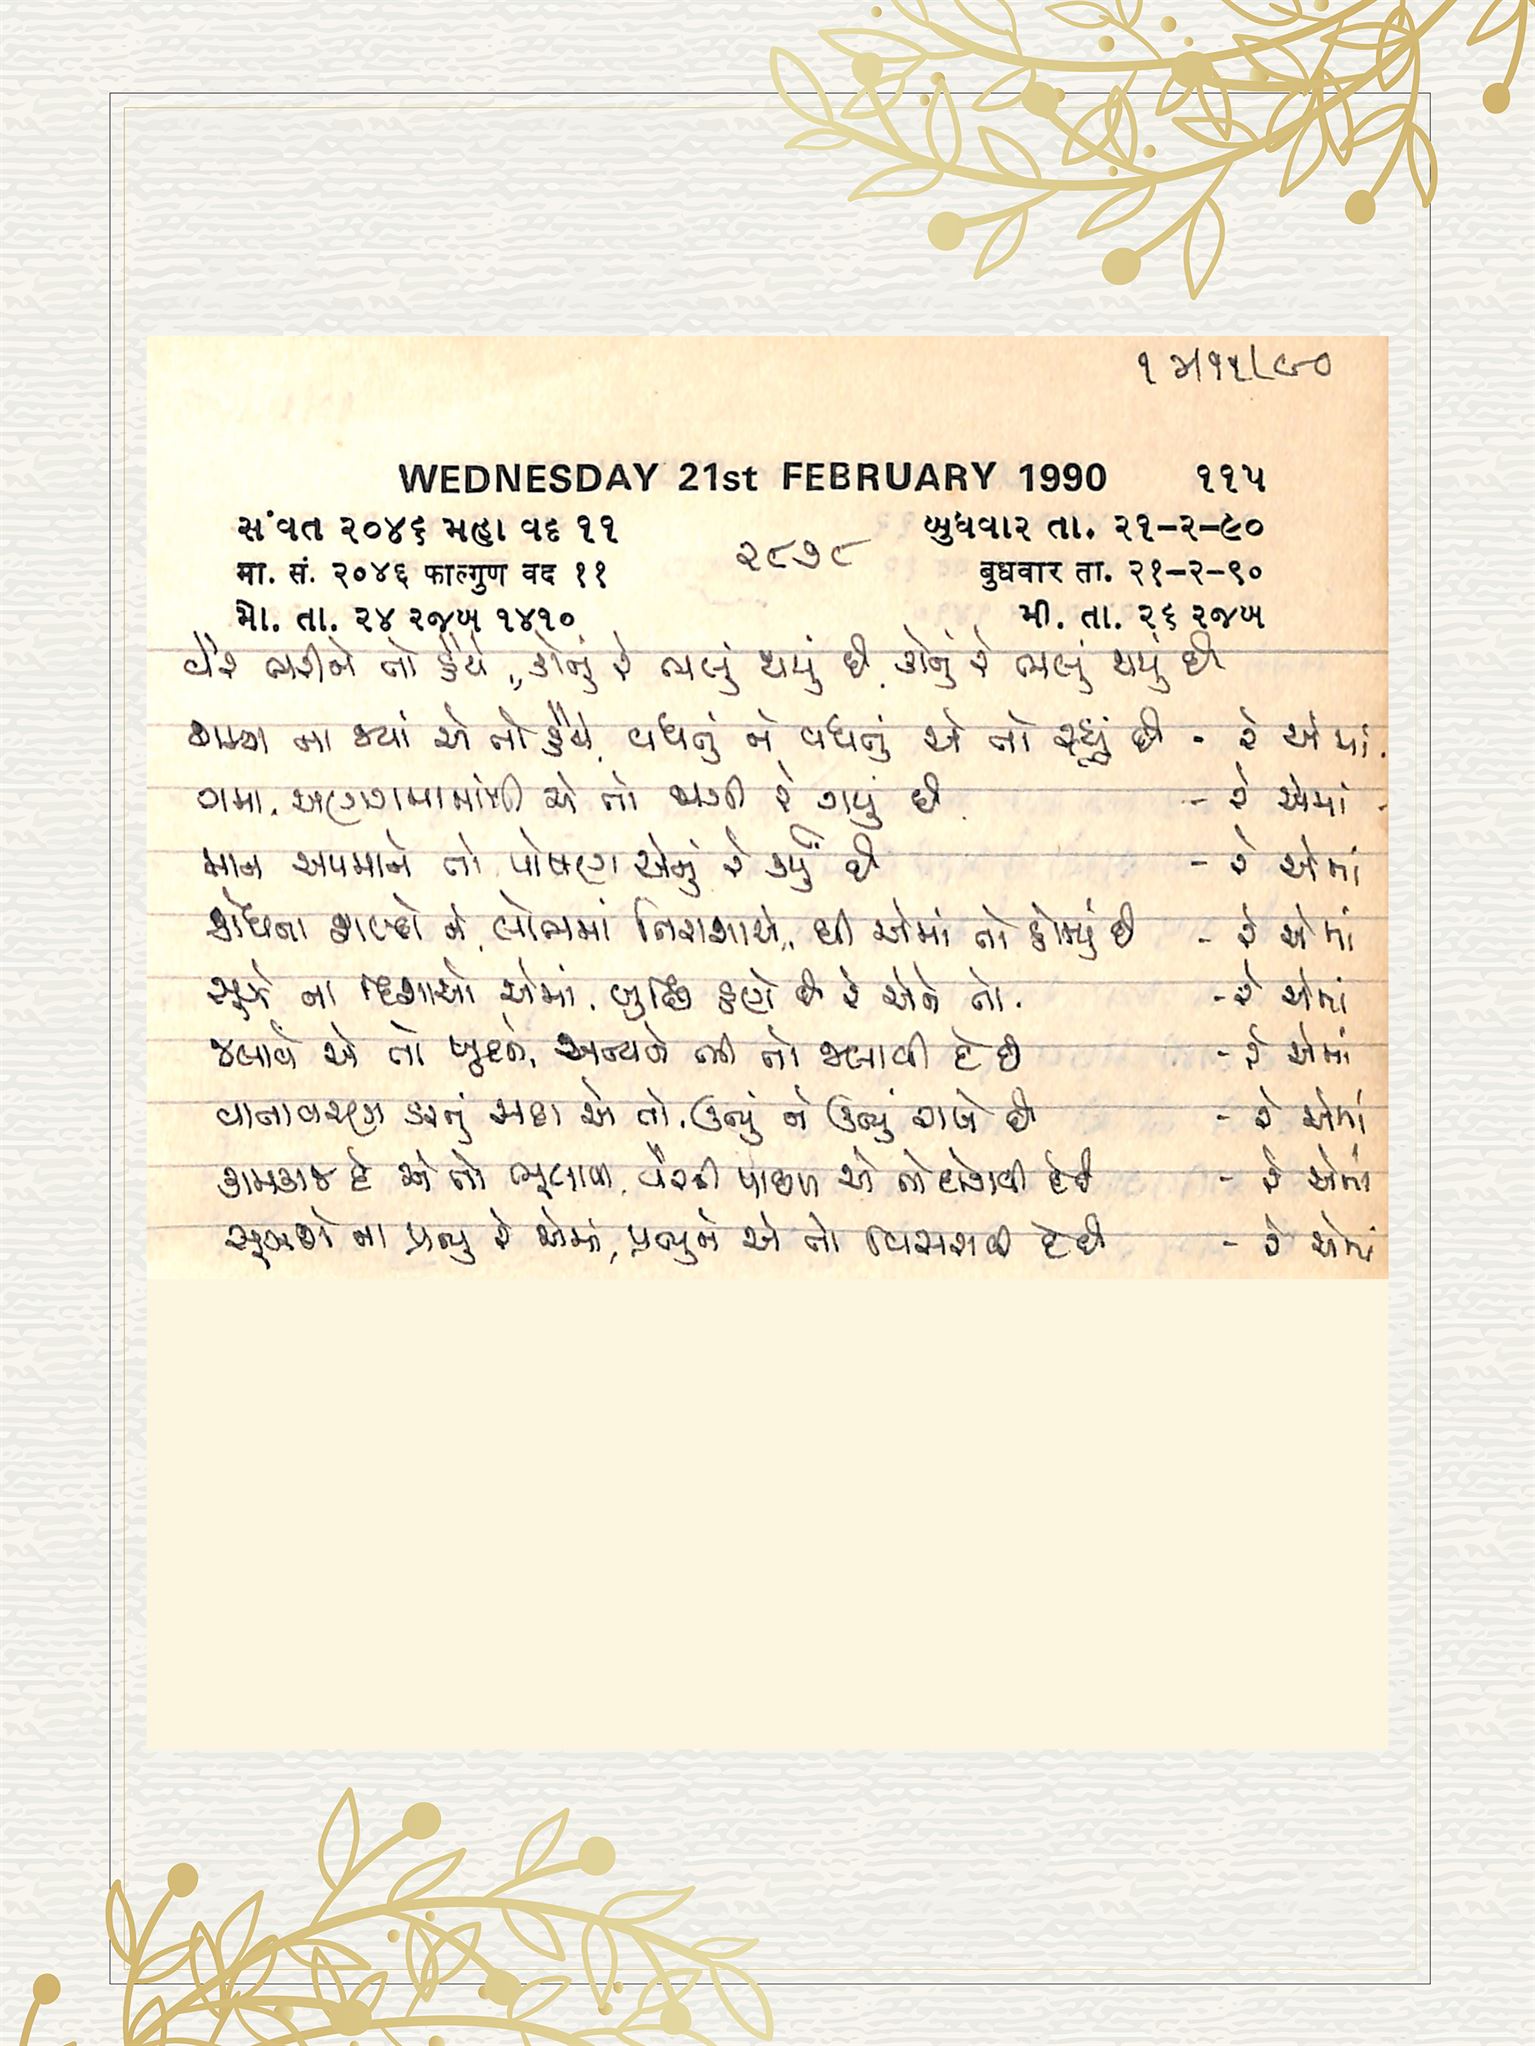 WEDNESDAY 21st FEBRUARY 1990 ૧૧૫
સંવત ૨૦૪૬ મહા વદ ૧૧ બુધવાર તા. ૨૧-૨-૯૦
૨૮૭૮
मा. सं. २०४६ फाल्गुण वद ११ बुधवार ता. २१-२-९०
મો. તા. ૨૪ રજબ ૧૪૧૦ મી. તા. ૨૬ રજબ
વૈર ભરીને તો હૈયે, કોનું રે ભલું થયું છે, કોનું રે ભલું થયું છે
ના જ્યાં એ તો હૈયે, વધતું ને વધતું એ તો રહ્યું છે - રે એમાં
ગમા, અણગમામાંથી એ તો થાતી રે ગયું છે - રે એમાં
માન અપમાને તો પોષણ એનું રે કર્યું છે - રે એમાં
ક્રોધના ને, લોભમાં નિરાશાએ, એમાં તો છે - રે એમાં
સૂઝે ના દિશાઓ એમાં, બુદ્ધિ હણે છે રે એને તો - રે એમાં
જલાવે એ તો ખુદને, અન્યને ભી તો જલાવી દે છે - રે એમાં
વાતાવરણ ઘરનું સદા એ તો, ઉનું ને ઉનું રાખે છે - રે એમાં
કામકાજ દે એ તો ભૂલાવી, વૈરની પાછળ એ તો દોડાવી દે છે - રે એમાં
ના પ્રભુ રે એમાં, પ્રભુને એ તો વિસરાવી દે છે - રે એમાં